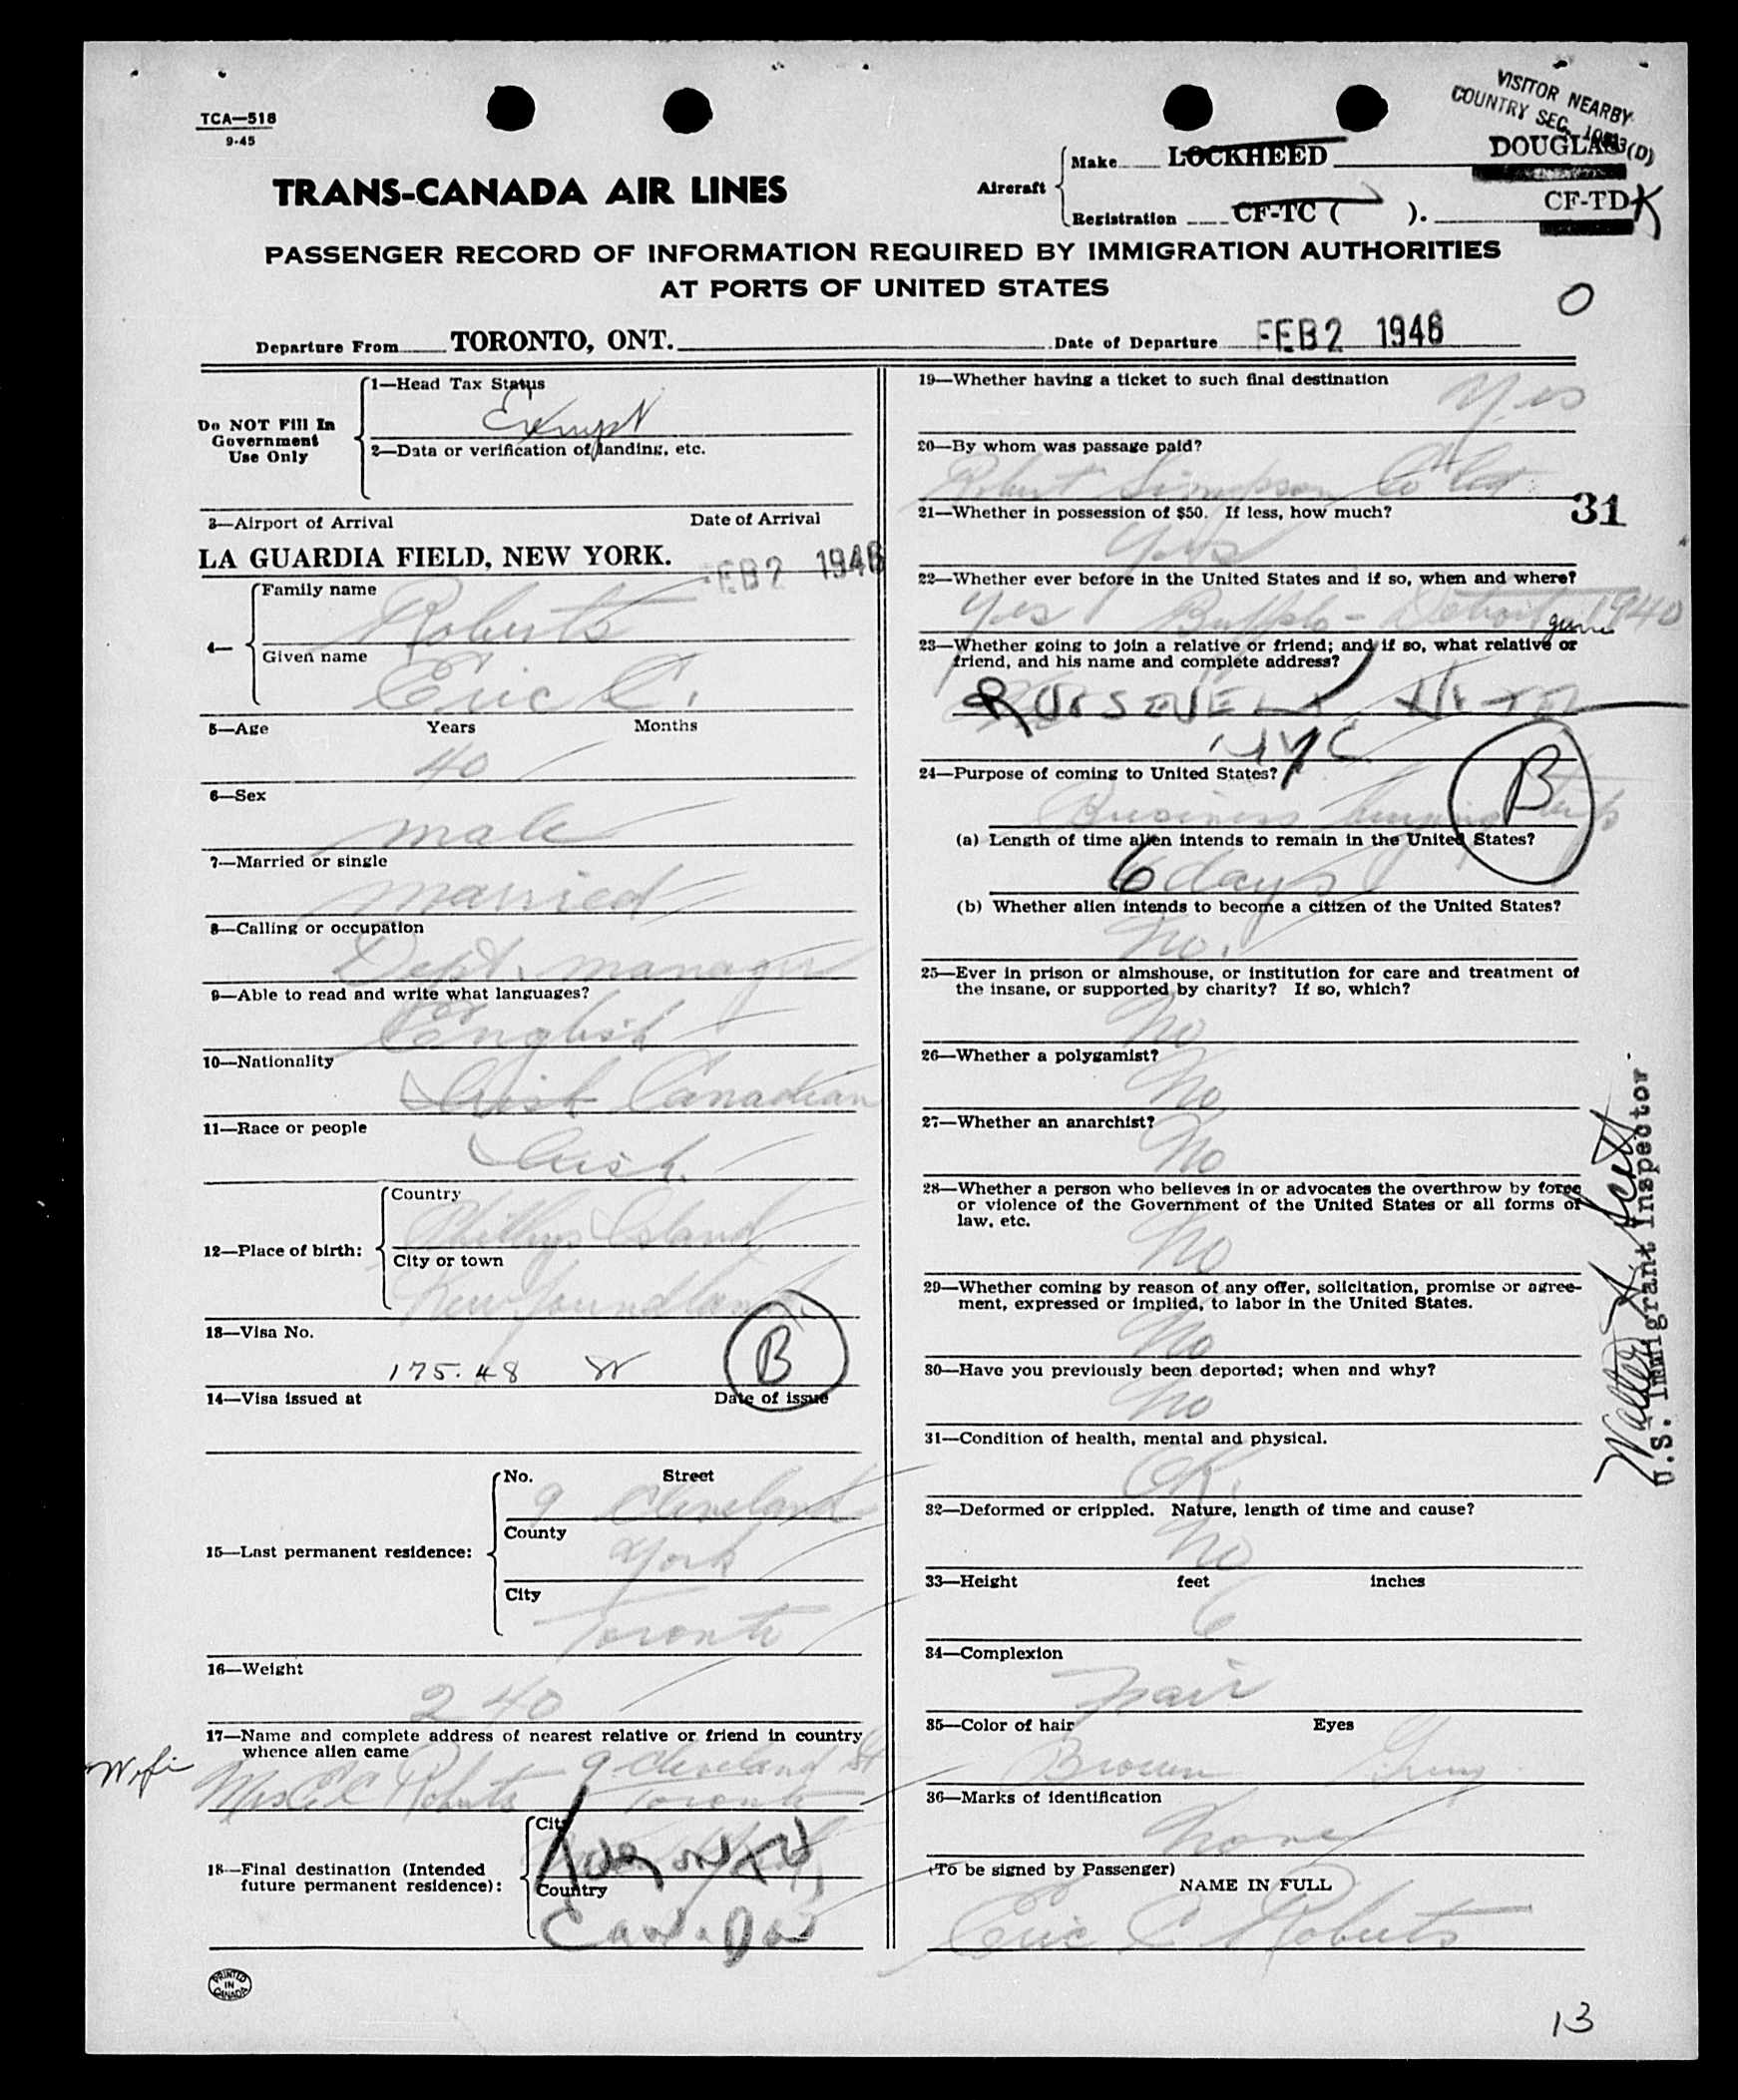 TCA—518
9-45
VISITOR NEARBY
COUNTRY SEC.
TRANS-CANADA AIR LINES
Aircraft
Make LOCKHEED DOUGLAS
Registration CF-TC ( ). CF-TDK
PASSENGER RECORD OF INFORMATION REQUIRED BY IMMIGRATION AUTHORITIES
AT PORTS OF UNITED STATES
0
Departure From TORONTO, ONT. Date of Departure FEB 2 1946
Do NOT Fill In
Government
Use Only
1—Head Tax Status
Exempt
2—Data or verification of landing, etc.
3—Airport of Arrival Date of Arrival
LA GUARDIA FIELD, NEW YORK. FEB 2 1946
4—
Family name
Roberts
Given name
Eric C.
5—Age Years Months
40
6—Sex
male
7—Married or single
married
8—Calling or occupation
Dept. manager
9—Able to read and write what languages?
English
10—Nationality
Irish Canadian
11—Race or people
Irish
12—Place of birth:
Country
Island
City or town
Newfoundland
13—Visa No.
175.48 B
14—Visa issued at Date of issue
15—Last permanent residence:
No. Street
9 Cleveland
County
York
City
Toronto
16—Weight
240
17—Name and complete address of nearest relative or friend in country
whence alien came
Wife
Mrs E C Roberts 9 Cleveland St
Toronto
18—Final destination (Intended
future permanent residence):
City
Country
Canada
PRINTED
IN
CANADA
19—Whether having a ticket to such final destination
Yes
20—By whom was passage paid?
Robert Simpson Co Ltd
21—Whether in possession of $50. If less, how much?
31
Yes
22—Whether ever before in the United States and if so, when and where?
Yes Buffalo - Detroit 1940
23—Whether going to join a relative or friend; and if so, what relative or
friend, and his name and complete address?
NYC
24—Purpose of coming to United States?
Business buying B
(a) Length of time alien intends to remain in the United States?
6 days
(b) Whether alien intends to become a citizen of the United States?
No.
25—Ever in prison or almshouse, or institution for care and treatment of
the insane, or supported by charity? If so, which?
No
26—Whether a polygamist?
No
27—Whether an anarchist?
No
28—Whether a person who believes in or advocates the overthrow by force
or violence of the Government of the United States or all forms of
law, etc.
No
29—Whether coming by reason of any offer, solicitation, promise or agree-
ment, expressed or implied, to labor in the United States.
No
30—Have you previously been deported; when and why?
No
31—Condition of health, mental and physical.
OK.
32—Deformed or crippled. Nature, length of time and cause?
No
33—Height feet inches
6
34—Complexion
Fair
35—Color of hair Eyes
Brown Grey
36—Marks of identification
None
(To be signed by Passenger)
NAME IN FULL
Eric C Roberts
Walter Scott
U.S. Immigrant Inspector.
13